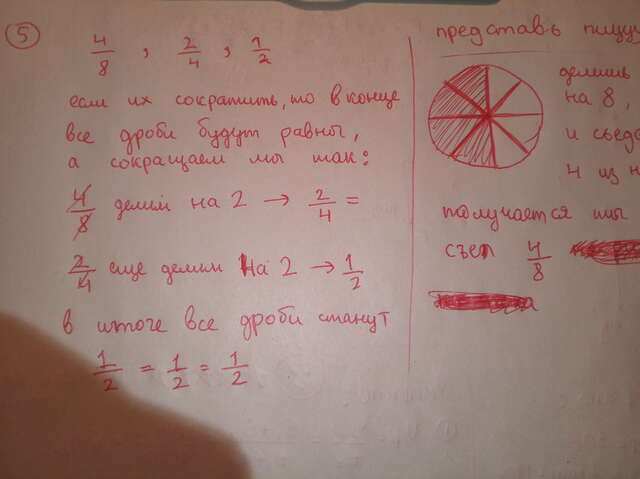 5
4/8 , 2/4 , 1/2
если их сократить, то в конце
все дроби будут равны,
а сокращаем мы так:
4/8 делим на 2 → 2/4 =
2/4 еще делим на 2 → 1/2
в итоге все дроби станут
1/2 = 1/2 = 1/2
представь пиццу
делишь
на 8,
и съеда
4 из н
получается ты
съел 4/8
а